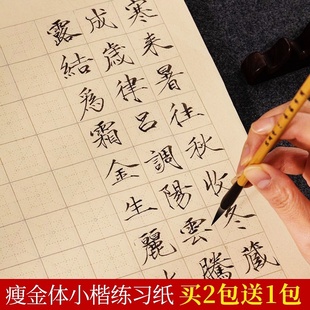 寒来暑往秋收冬藏
成歲律呂調陽雲騰
露結爲霜金生麗
瘦金体小楷练习纸 买2包送1包